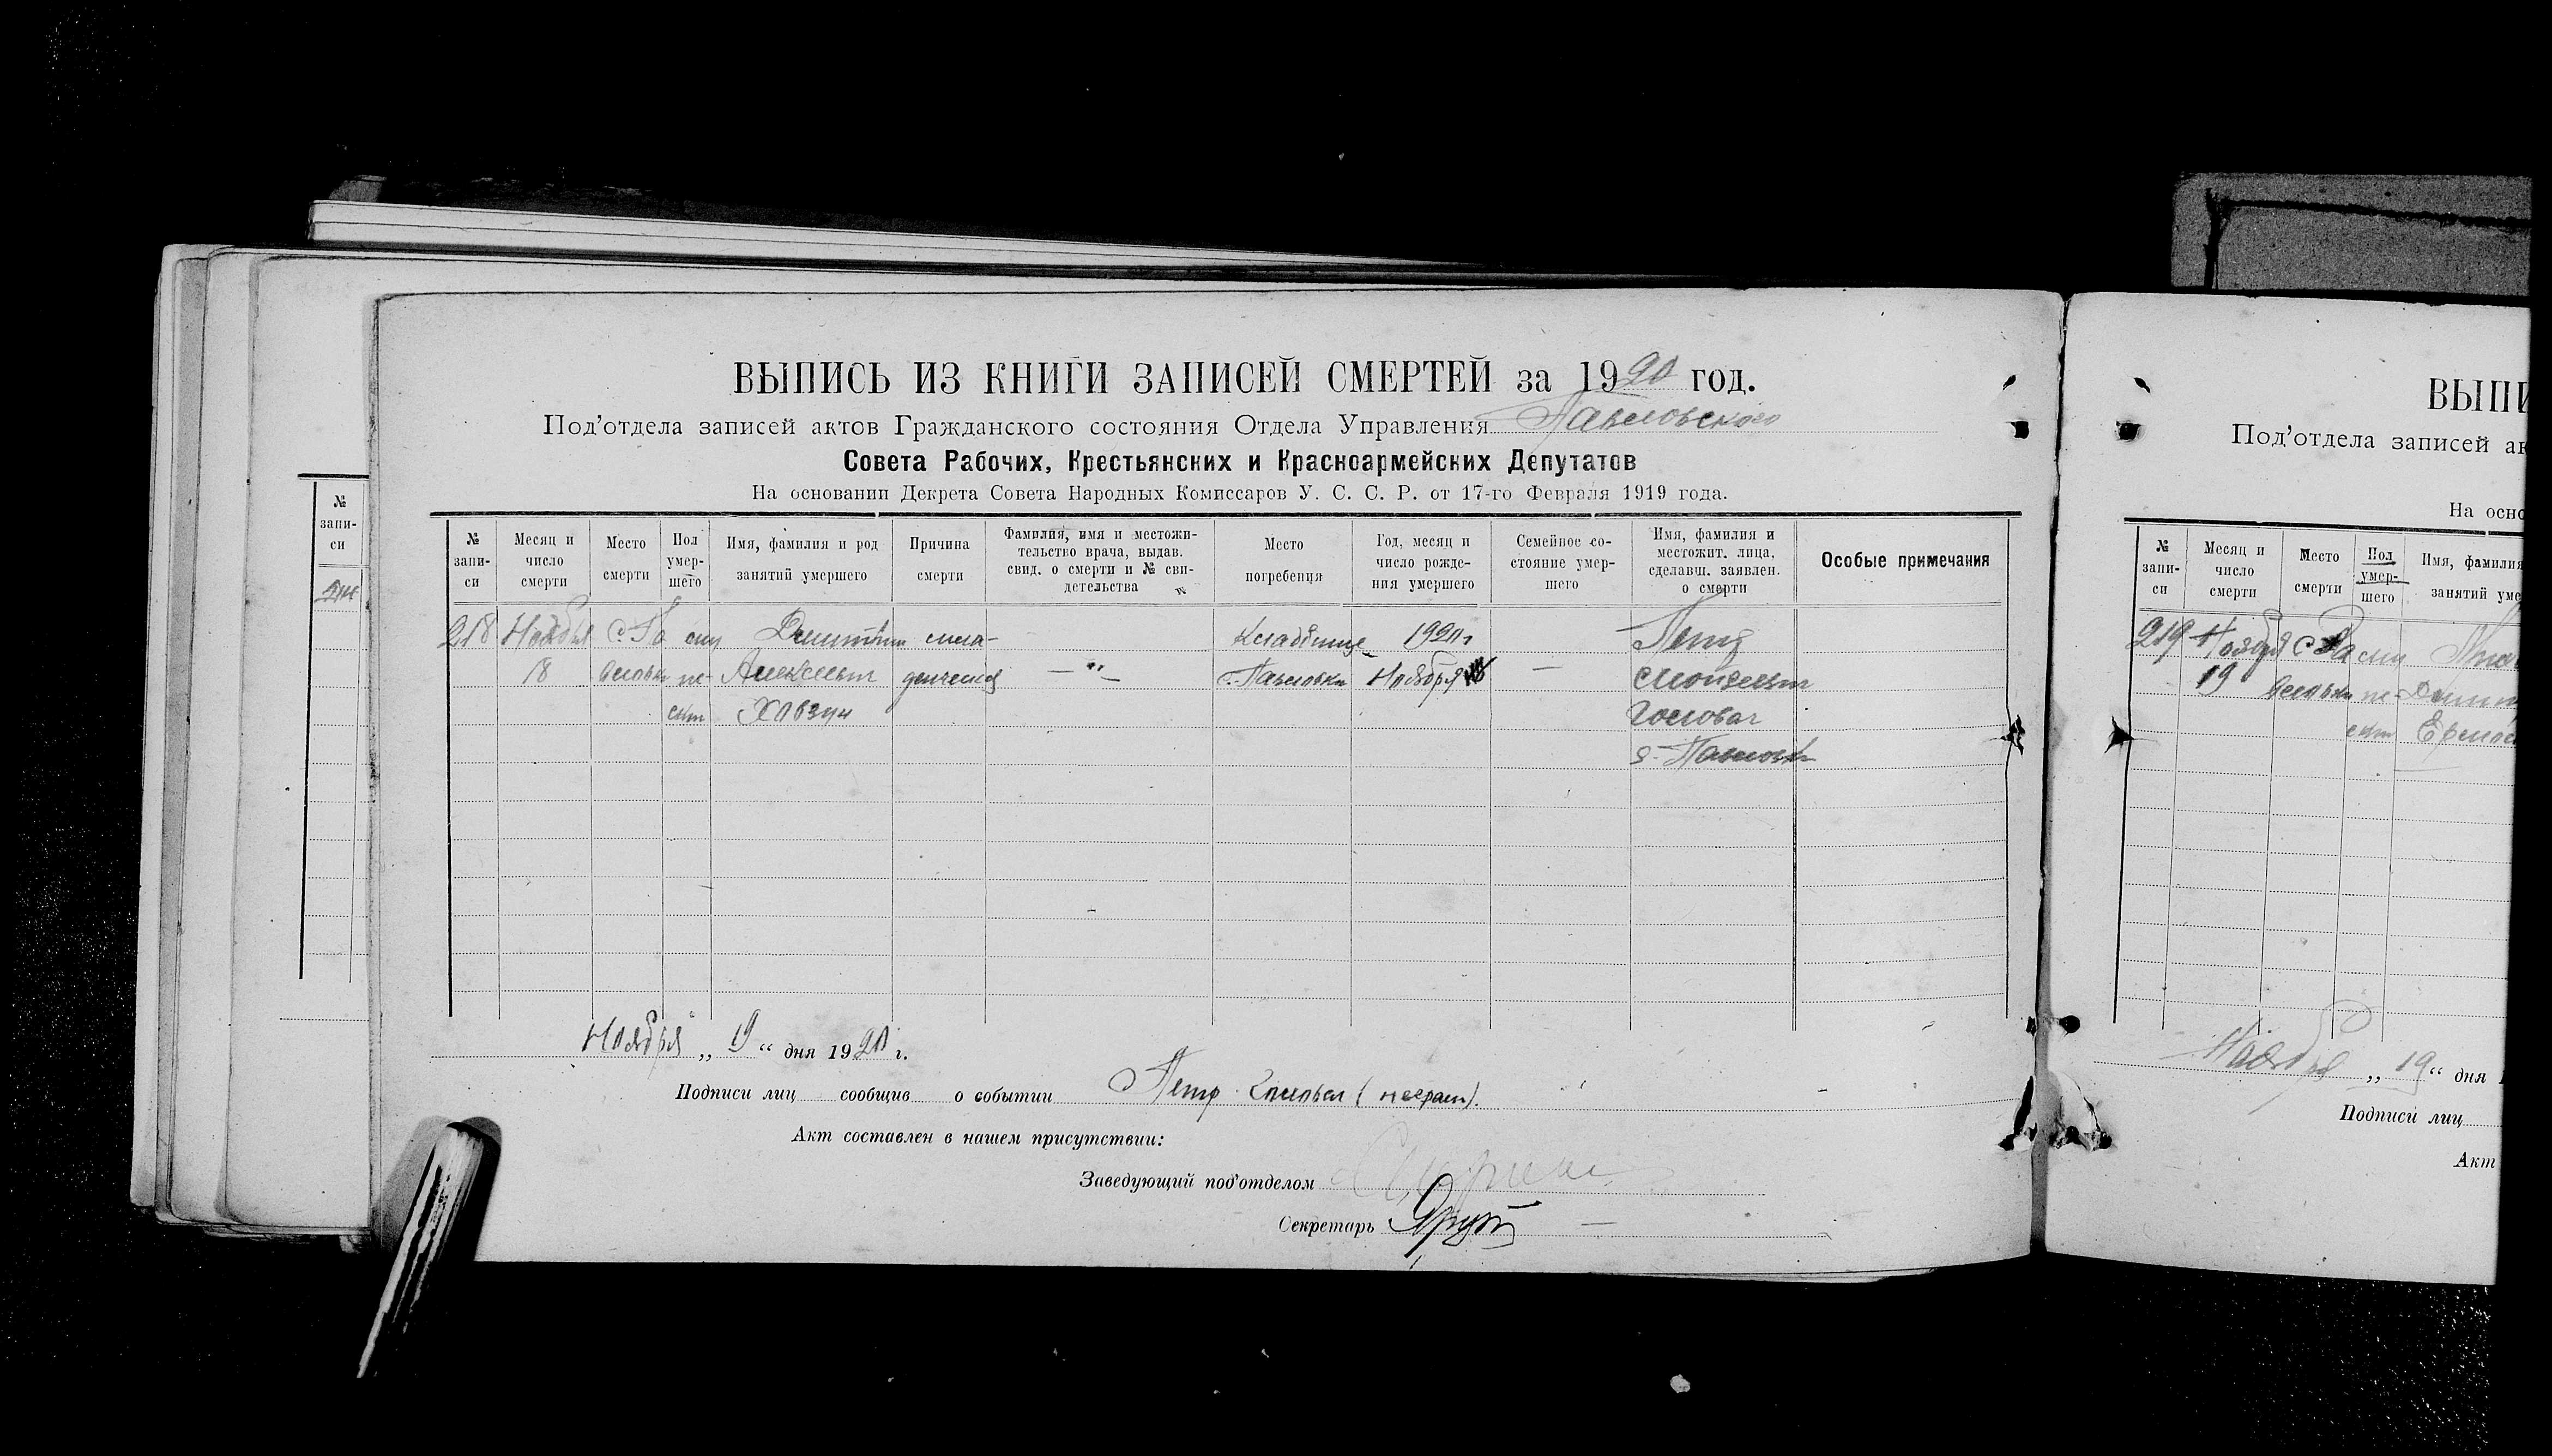 №
запи-
си
ВЫПИСЬ ИЗ КНИГИ ЗАПИСЕЙ СМЕРТЕЙ за 1920 год.
Под’отдела записей актов Гражданского состояния Отдела Управления Павловского
Совета Рабочих, Крестьянских и Красноармейских Депутатов
На основании Декрета Совета Народных Комиссаров У. С. С. Р. от 17-го Февраля 1919 года.
№ запи- си
Месяц и число смерти
Место смерти
Пол умер- шего
Имя, фамилия и род занятий умершего
Причина смерти
Фамилия, имя и местожи- тельство врача, выдав. свид. о смерти и № сви- детельства
Место погребения
Год, месяц и число рожде- ния умершего
Семейное со- стояние умер- шего
Имя, фамилия и местожит. лица, сделавш. заявлен. о смерти
Особые примечания
218 Ноября с. Па Дмитрий мла- Кладбище 1920 г Петр
18 вловка Алексеевич денческая — " — с. Павловки Ноября — Моисеевич
Ховзун Головач
Павловки
Ноября „ 19 “ дня 1920 г.
Подписи лиц сообщив о событии Петр (неграм).
Акт составлен в нашем присутствии:
Заведующий под’отделом
Секретарь
ВЫПИ
Под’отдела записей ак
На осно
№ запи- си
Месяц и число смерти
Место смерти
Пол умер- шего
Имя, фамилия занятий уме
219 Ноября с. Па
19 вловка
Ноября „ 19 “ дня 1
Подписи лиц
Акт